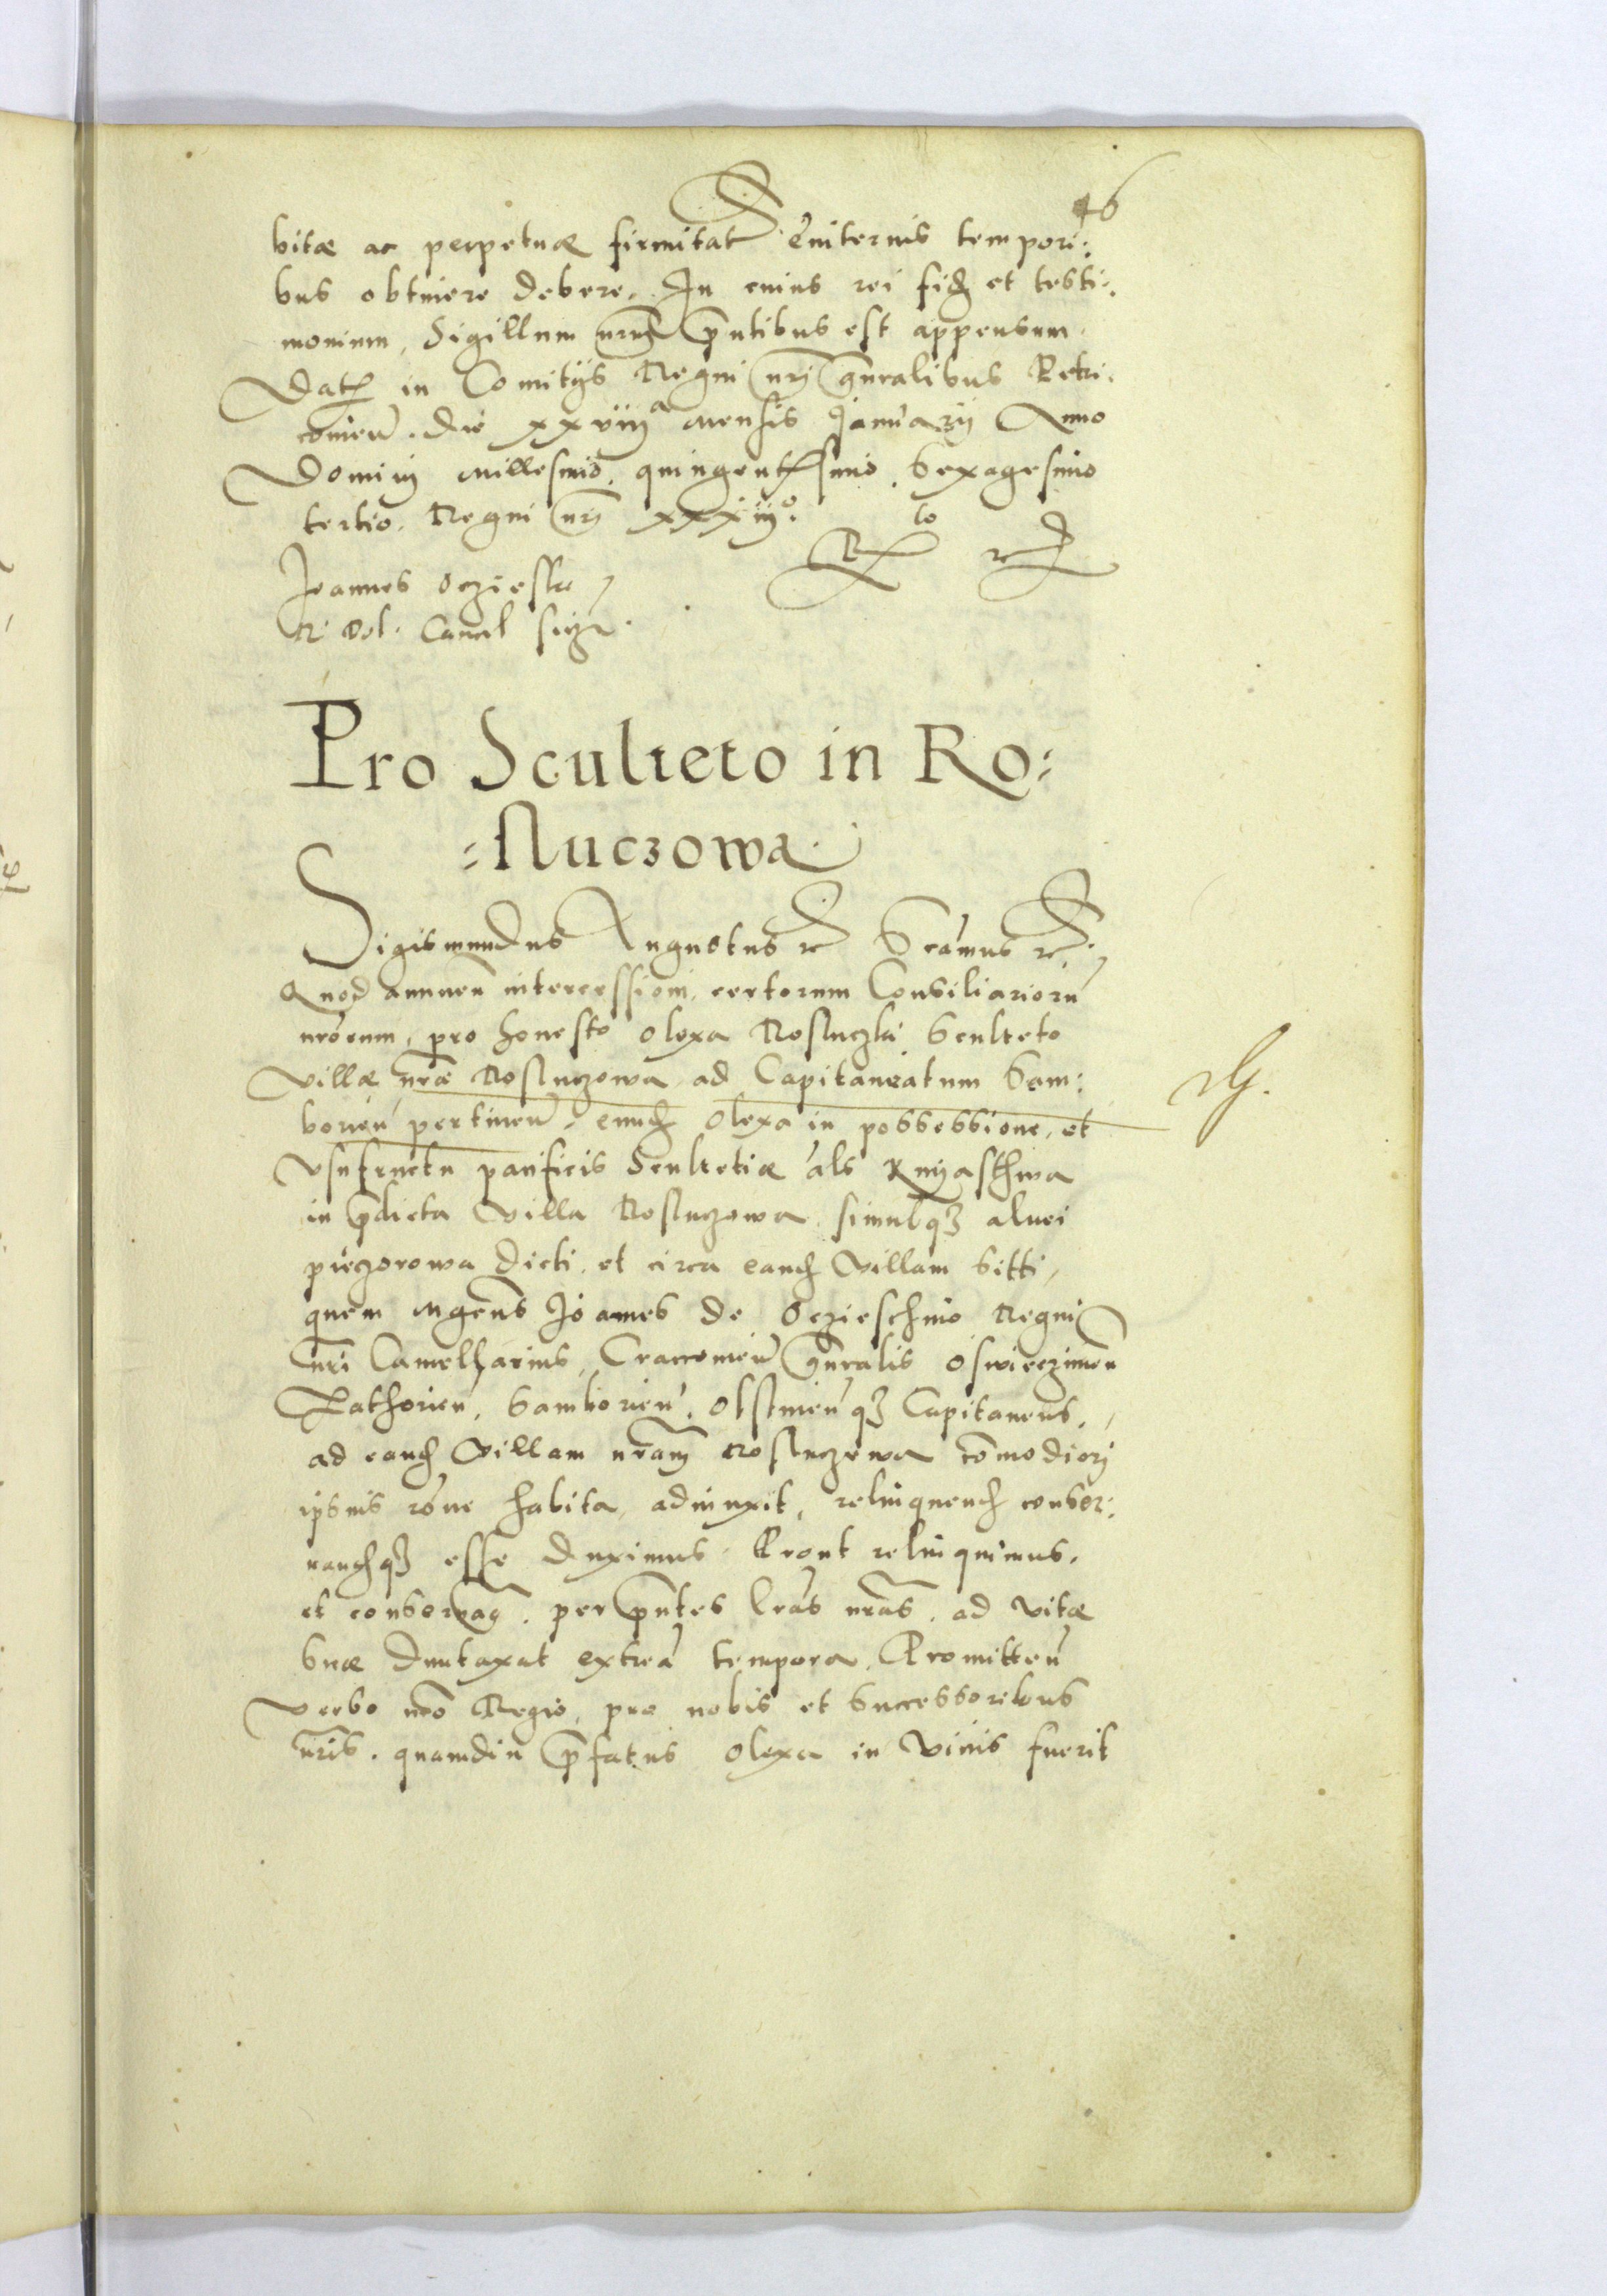 46
bitæ ac perpetuæ firmitat eviternis tempori:
bus obtinere debere. In cuius rei fid et testi:
monium, Sigillum nrum pntibus est appensum.
Dat in Comitijs Regni nrj gnralibus Petri:
couien. die xxviij a mensis Januarij Anno
Dominj Millesimo, quingentesimo, Sexagesimo
tertio. Regni nrj xxxiij o.
Joannes Oczieski
R. Pol. Cancel
Pro Sculteto in Ro:
:sluczowa
Sigismundus Augustus rc Seamus rc.
Quod annuen intercessioni certorum Consiliarioru
nrorum, pro honesto Olexa Rosluczki Sculteto
Villæ nræ Rosluczowa ad Capitaneatum Sam:
borien pertinen, eund Olexa in possessione, et
Vsufructu pacificis Scultetiæ als Knyasthwa
in pdicta Villa Rosluczowa, simulqz aluei
pieczorowa dicti, et circa eand Villam sitti,
quem Mgcus Joannes de Oczieschino Regni
nri Cancellarius, Cracouien gnralis Oswieczimen
Zathorien, Samborien, Olstinen qz Capitaneus,
ad eand Villam nram Rosluczowa comodiorj
ipsius rone habita, adiunxit, relinquend conser:
uandqz esse duximus. Prout relinquimus,
et conseruam, per pntes lras nras, ad vitæ
suæ duntaxat extrea tempora. Promitten
verbo nro Regio, pro nobis et Successoribus
nris. quamdiu pfatus Olexa in viuis fuerit